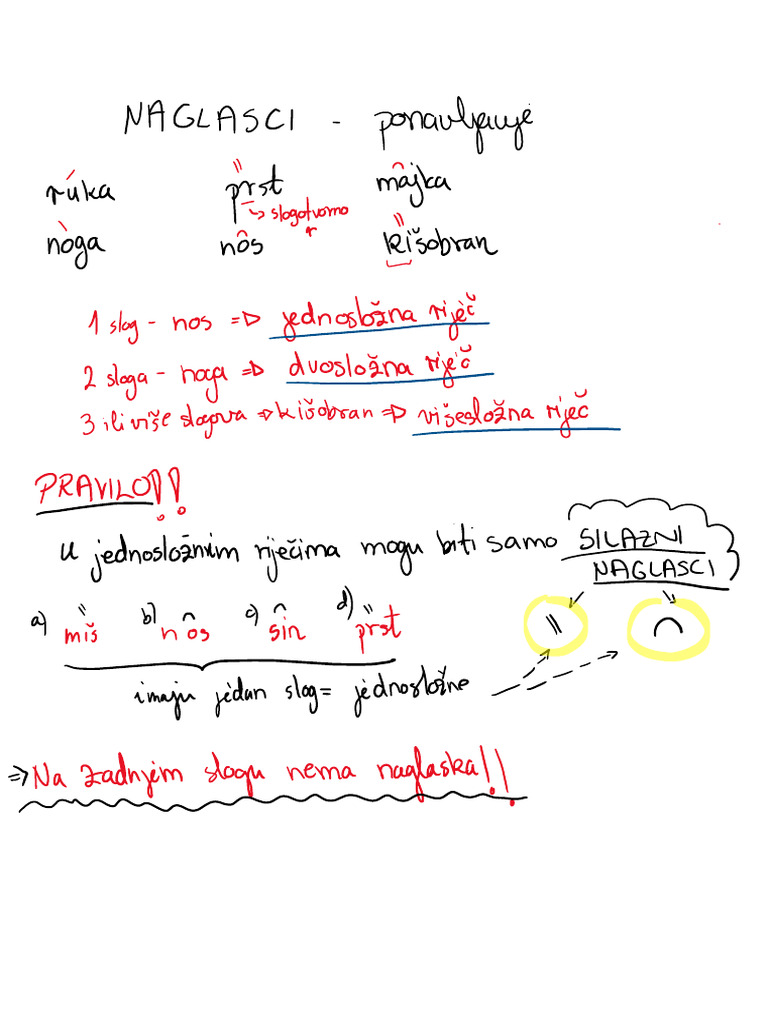 NAGLASCI - ponavljanje
rúka pȑst mȃjka
↳ slogotvorno r
nòga nȏs kȉšobran
1 slog - nos => jednosložna riječ
2 sloga - noga => dvosložna riječ
3 ili više slogova => kišobran => višesložna riječ
PRAVILO!!
U jednosložnim riječima mogu biti samo SILAZNI
NAGLASCI
a) mȉš b) nȏs c) sȋn d) pȑst \\ ⌒
imaju jedan slog = jednosložne
=> Na zadnjem slogu nema naglaska!!